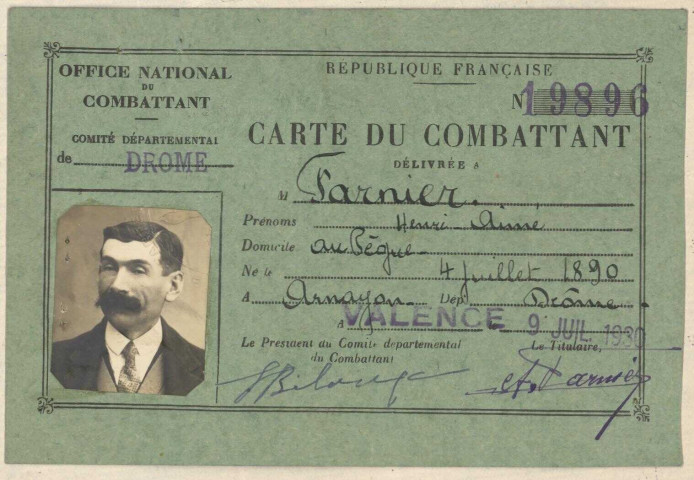 OFFICE NATIONAL
DU
COMBATTANT
COMITÉ DÉPARTEMENTAL
de DROME
RÉPUBLIQUE FRANÇAISE
N 19896
CARTE DU COMBATTANT
DÉLIVRÉE A
M Farnier.
Prénoms Henri Aimé
Domicile au Pègue
Né le 4 Juillet 1890
A Arnayon Dép Drôme
A VALENCE 9 JUIL. 1930
Le Président du Comité départemental
du Combattant
Le Titulaire,
Farnier